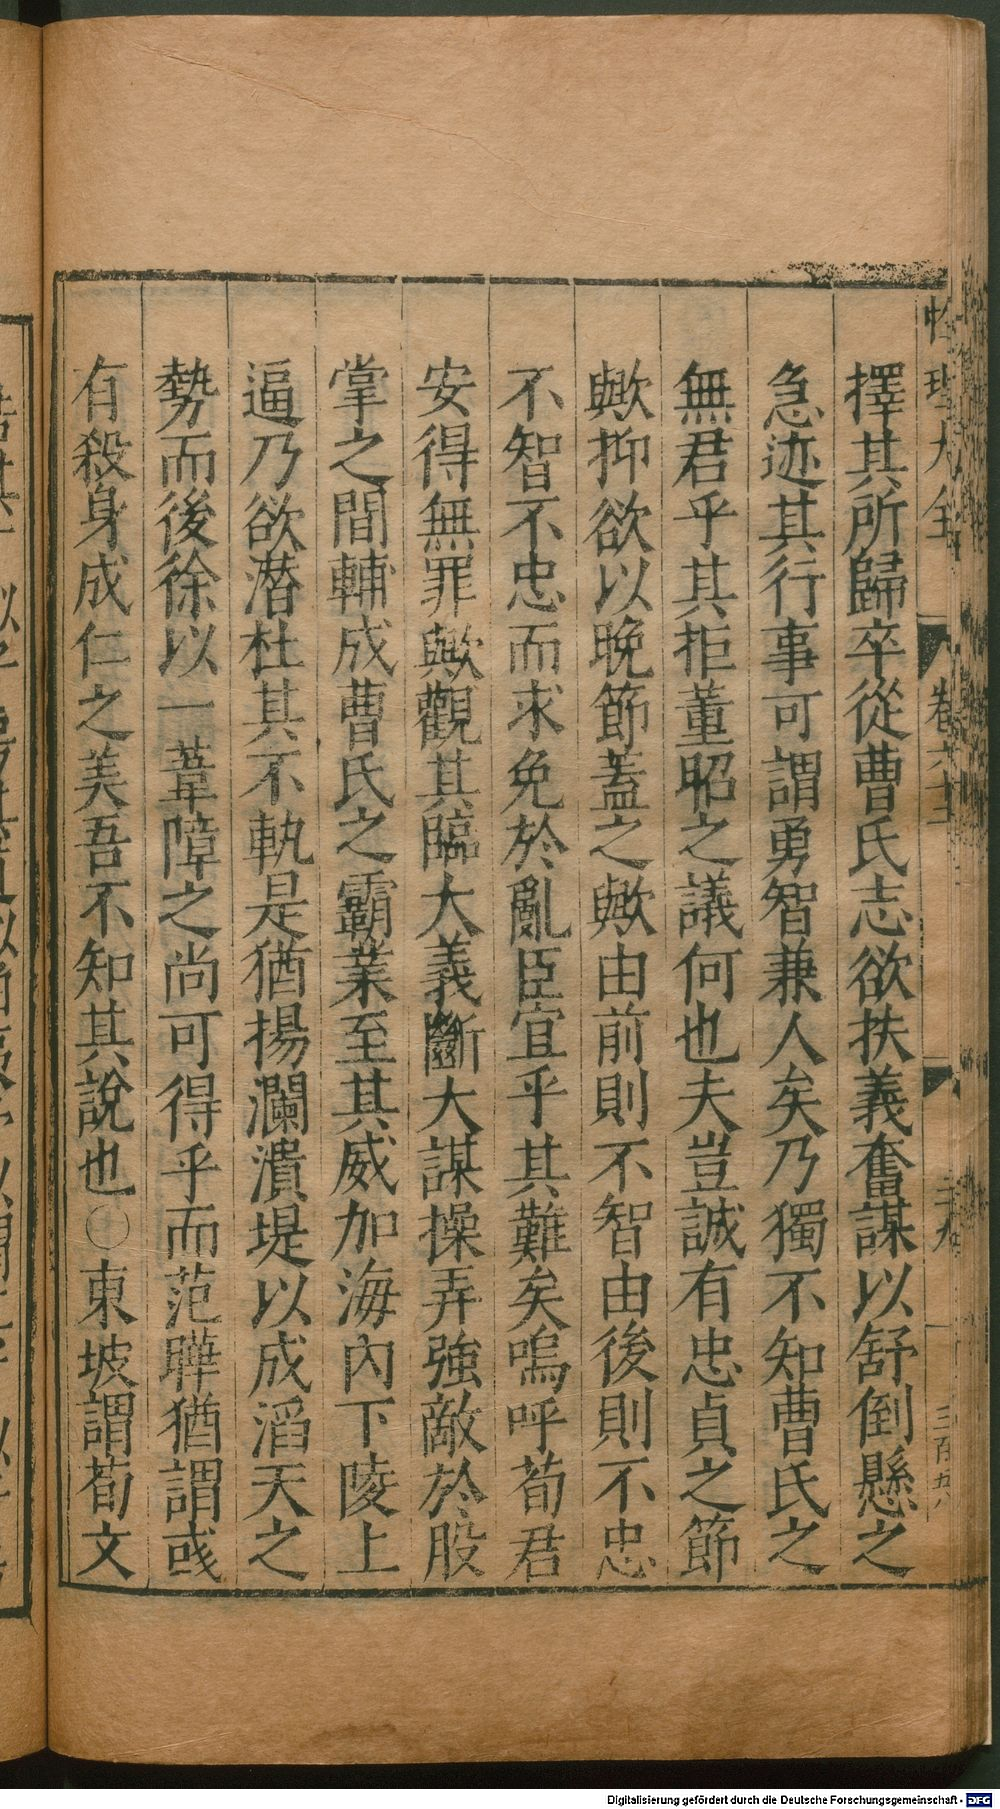 擇其所歸卒從曹氏志欲扶義奮謀以舒倒懸之
急迹其行事可謂勇智兼人矣乃獨不知曹氏之
無君乎其拒董昭之議何也夫豈誠有忠貞之節
歟抑欲以晚節蓋之歟由前則不智由後則不忠
不智不忠而求免於亂臣宜乎其難矣嗚呼荀君
安得無罪歟觀其臨大義斷大謀操弄強敵於股
掌之間輔成曹氏之霸業至其威加海內下陵上
逼乃欲潛杜其不軌是猶揚瀾潰堤以成滔天之
勢而後徐以一葦障之尚可得乎而范曄猶謂彧
有殺身成仁之美吾不知其說也〇東坡謂荀文
性理大全 卷六十二
Digitalisierung gefördert durch die Deutsche Forschungsgemeinschaft - DFG